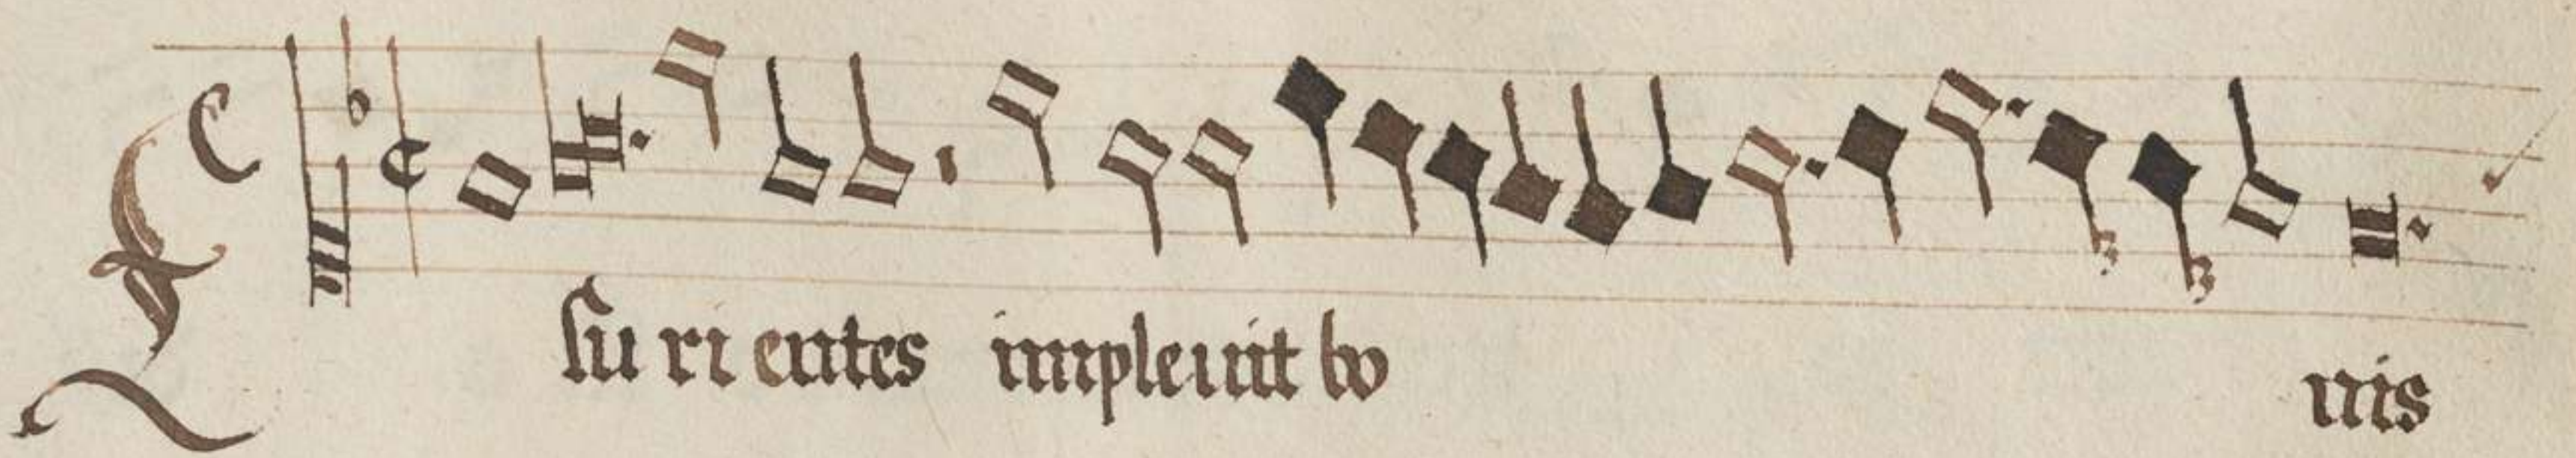 Esu ri entes impleuit bo nis